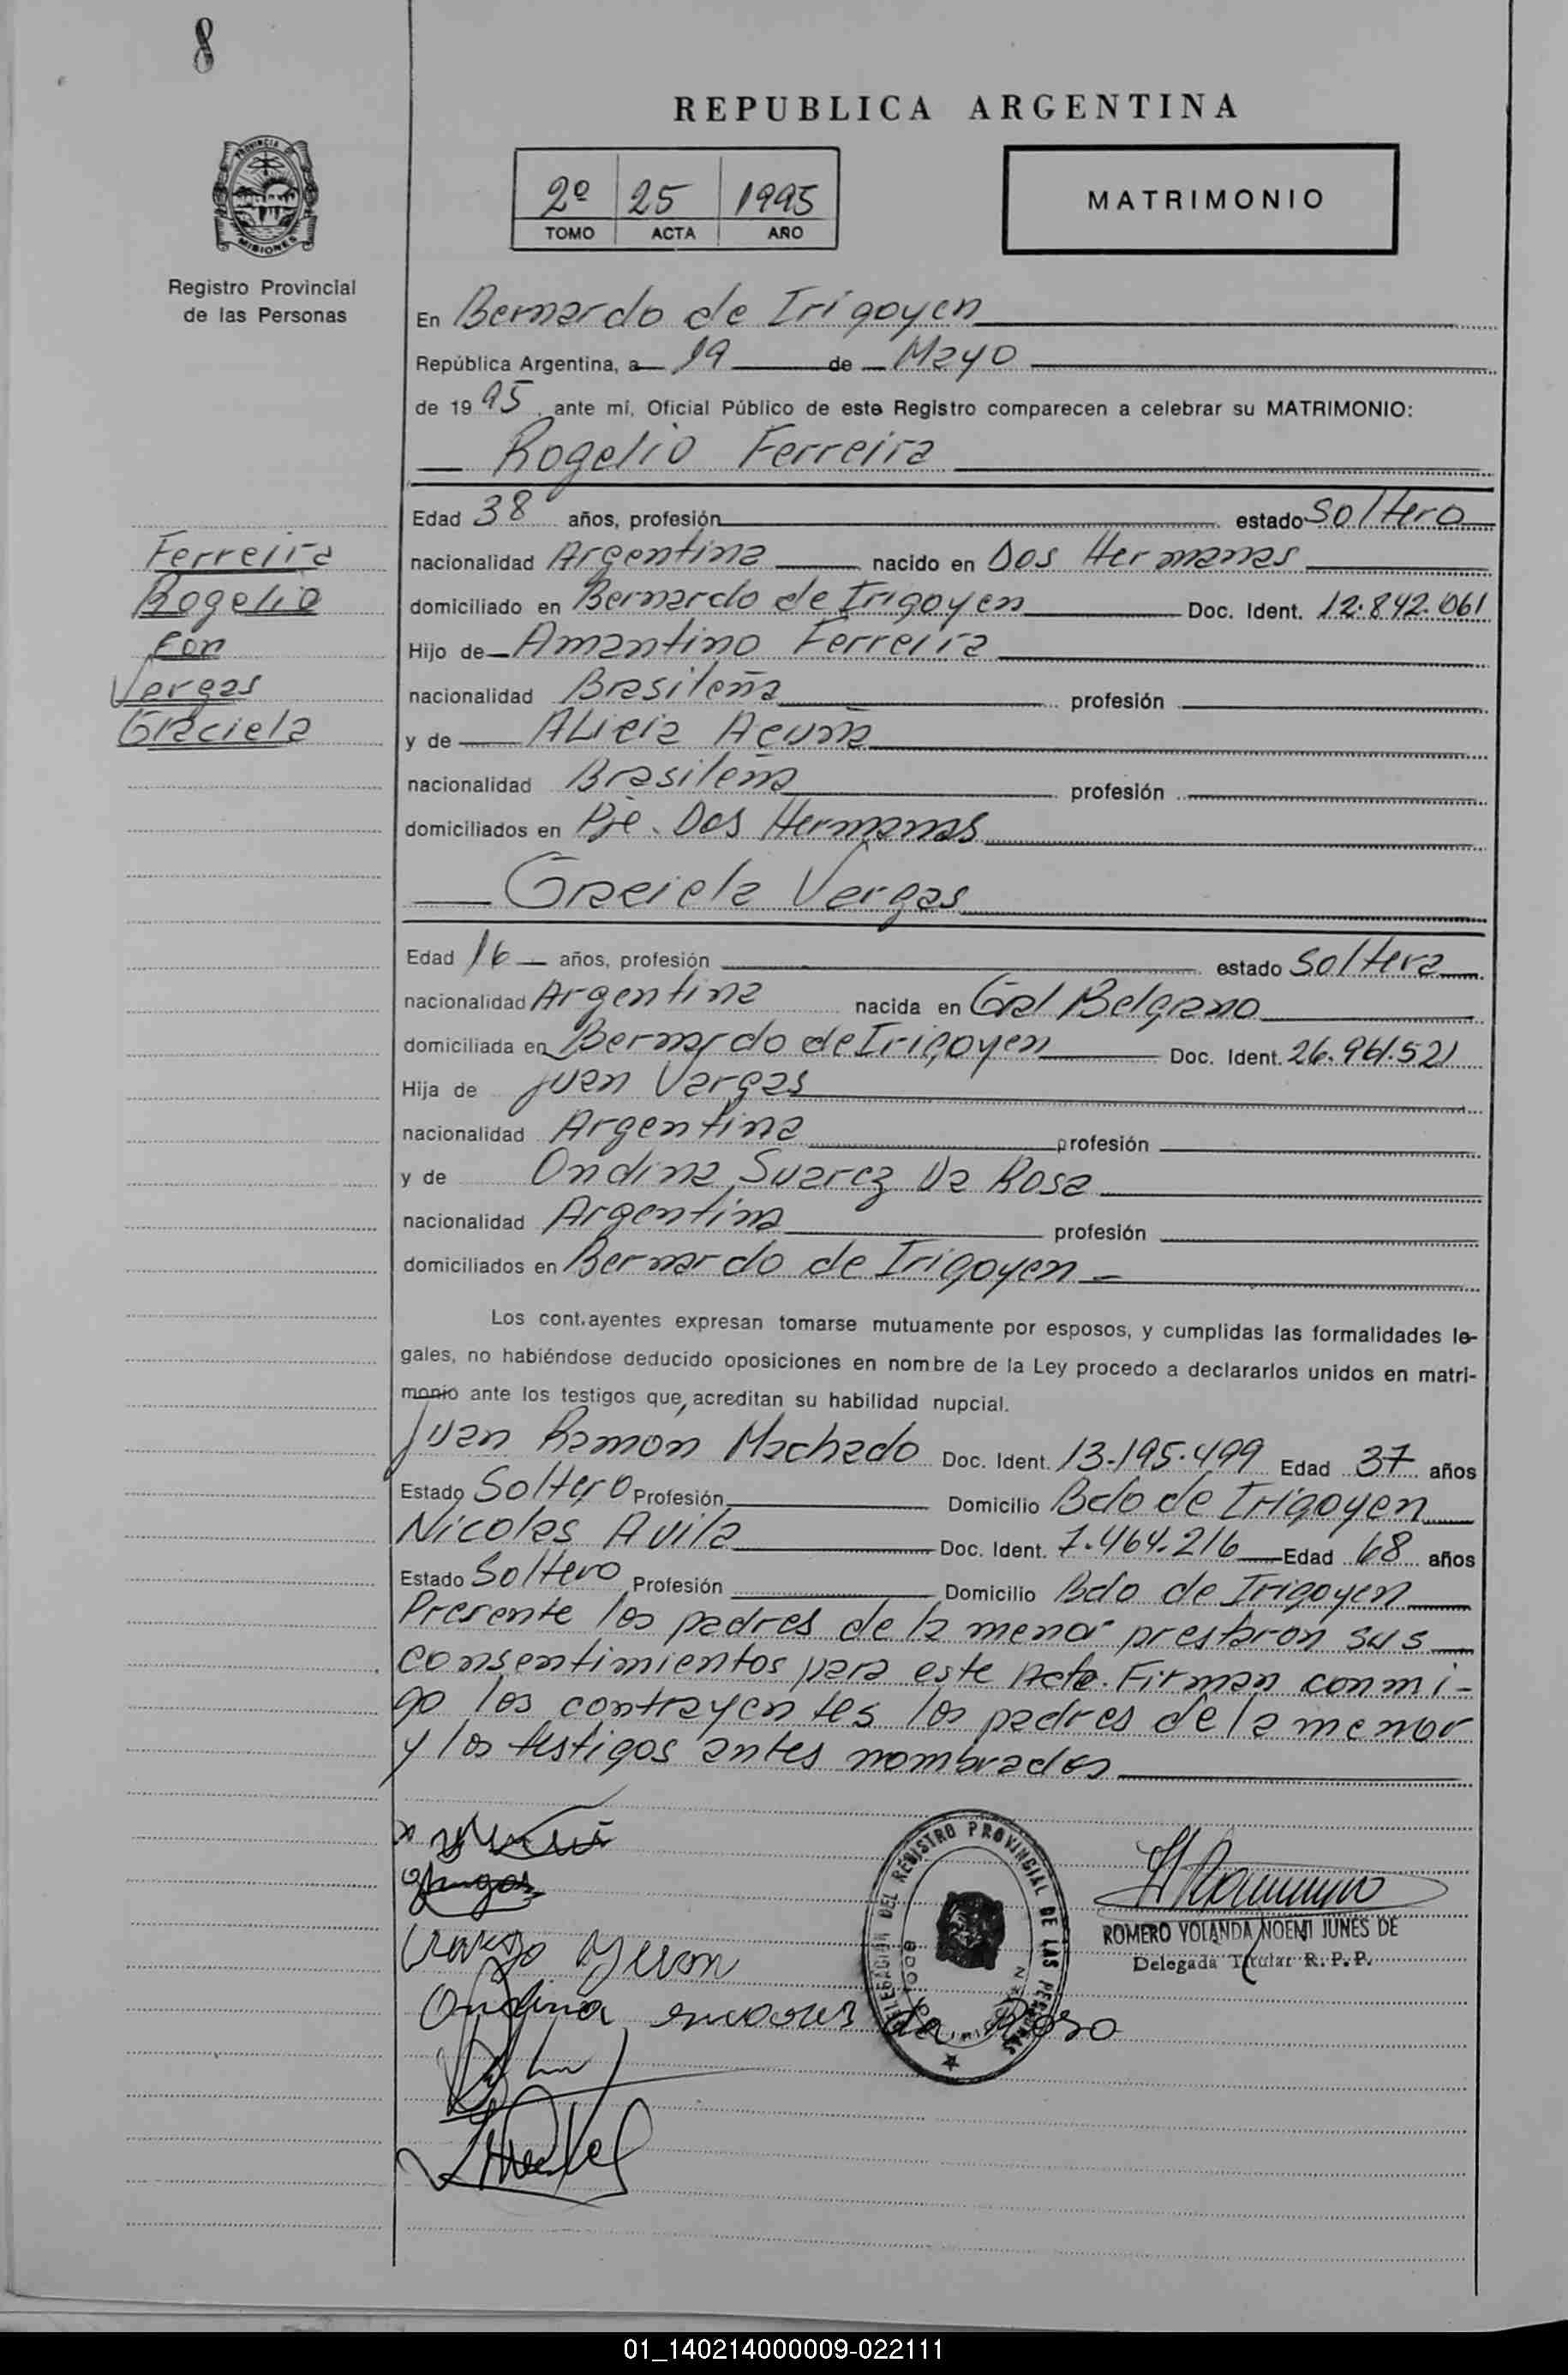 8
REPUBLICA ARGENTINA
PROVINCIA DE
MISIONES
Registro Provincial
de las Personas
2º 25 1995
TOMO ACTA AÑO
MATRIMONIO
En Bernardo de Irigoyen
República Argentina, a 19 de Mayo
de 19 95, ante mí, Oficial Público de este Registro comparecen a celebrar su MATRIMONIO:
Rogelio Ferreira
Ferreira
Rogelio
con
Vargas
Graciela
Edad 38 años, profesión estado Soltero
nacionalidad Argentina nacido en Dos Hermanas
domiciliado en Bernardo de Irigoyen Doc. Ident. 12.842.061
Hijo de Amantino Ferreira
nacionalidad Brasileña profesión
y de Alicia Acuña
nacionalidad Brasileña profesión
domiciliados en Pje. Dos Hermanas
Graciela Vargas
Edad 16 años, profesión estado Soltera
nacionalidad Argentina nacida en Gral Belgrano
domiciliada en Bernardo de Irigoyen Doc. Ident. 26.961.521
Hija de Juan Vargas
nacionalidad Argentina profesión
y de Ondina Suarez Da Rosa
nacionalidad Argentina profesión
domiciliados en Bernardo de Irigoyen
Los cont.ayentes expresan tomarse mutuamente por esposos, y cumplidas las formalidades le-
gales, no habiéndose deducido oposiciones en nombre de la Ley procedo a declararlos unidos en matri-
monio ante los testigos que acreditan su habilidad nupcial.
Juan Ramon Machado Doc. Ident. 13.195.499 Edad 37 años
Estado Soltero Profesión Domicilio Bdo de Irigoyen
Nicolas Avila Doc. Ident. 7.464.216 Edad 68 años
Estado Soltero Profesión Domicilio Bdo de Irigoyen
Presente los padres de la menor prestaron sus
consentimientos para este Acto. Firman conmi-
go los contrayentes los padres de la menor
y los testigos antes nombrados
DELEGACION DEL REGISTRO PROVINCIAL DE LAS PERSONAS
ROMERO YOLANDA NOEMI JUNES DE
Delegada Titular R. P. P.
Ondina da Roso
01_140214000009-022111